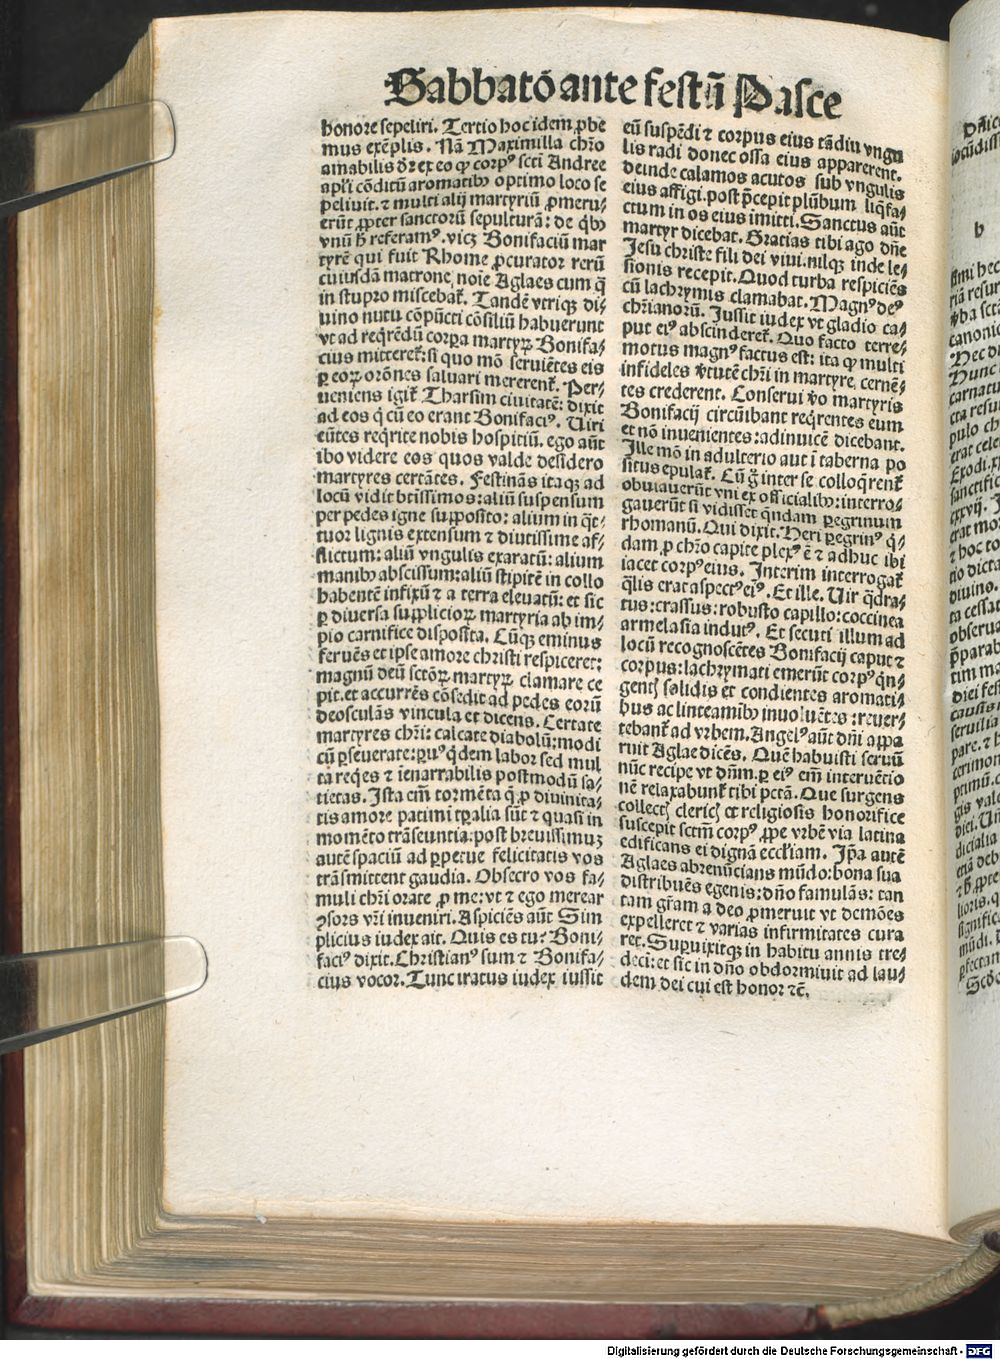 Sabbatō ante festū Pasce
honore sepeliri. Tertio hoc idem ꝓbe
mus exēplis. Nā Maximilla chr̄o
amabilis d̄r ex eo ꝙ corpꝰ scti Andree
apl̓i cōditū aromatibꝫ optimo loco se
peliuit. ⁊ multi alij martyriū ꝓmeru⸗
erūt ꝓpter sanctorū sepulturā: de q̇bꝫ
vnū h̄ referamꝰ. vicꝫ Bonifaciū mar
tyrē qui fuit Rhome ꝓcurator rerū
cuiusdā matrone noīe Aglaes cum q̄
in stupro miscebat̄. Tandē vtriqꝫ di⸗
uino nutu cōpūcti cōsiliū habuerunt
vt ad req̇rēdū corꝑa martyꝝ Bonifa⸗
cius mitteret̄: si quo mō seruiētes eis
ꝑ eoꝝ orōnes saluari mererent̄. Per⸗
ueniens igit̄ Tharsim ciuitatē: dixit
ad eos q̇ cū eo erant Bonifaciꝰ. Uiri
eūtes req̇rite nobis hospitiū. ego aūt
ibo videre eos quos valde desidero
martyres certātes. Festinās itaqꝫ ad
locū vidit btīssimos: aliū suspensum
per pedes igne supposito: alium in q̄t⸗
tuor lignis extensum ⁊ diutissime af⸗
flictum: aliū vngulis exaratū: alium
manibꝫ abscissum: aliū stipitē in collo
habentē infixū ⁊ a terra eleuatū: et sic
ꝑ diuersa supplicioꝝ martyria ab im⸗
pio carnifice disposita. Cūqꝫ eminus
feruēs et ipse amore christi respiceret:
magnū deū sctōꝝ martyꝝ clamare ce
pit. et accurrēs cōsedit ad pedes eorū
deosculās vincula et dicens. Certate
martyres chr̄i: calcate diabolū: modi
cū ꝑseuerate: ꝑuꝰ q̇dem labor sed mul
ta req̇es ⁊ ienarrabilis postmodū sa⸗
tietas. Ista em̄ tormēta q̄ ꝓ diuinita⸗
tis amore patimi tꝑalia sūt ⁊ quasi in
momēto trāseuntia. post breuissimuꝫ
autē spaciū ad ꝑpetue felicitatis vos
trāsmittent gaudia. Obsecro vos fa⸗
muli chr̄i orate ꝓ me: vt ⁊ ego merear
ꝯsors vr̄i inueniri. Aspiciēs aūt Sim
plicius iudex ait. Quis es tu? Boni⸗
faciꝰ dixit. Christianꝰ sum ⁊ Bonifa⸗
cius vocor. Tunc iratus iudex iussit
eū suspēdi ⁊ corpus eius tādiu vngu
lis radi donec ossa eius apparerent.
deinde calamos acutos sub vngulis
eius affigi. post p̄cepit plūbum liq̄fa⸗
ctum in os eius imitti. Sanctus aūt
martyr dicebat. Gratias tibi ago dn̄e
Jesu christe fili dei viui. nilqꝫ inde le⸗
sionis recepit. Quod turba respiciēs
cū lachrymis clamabat. Magnꝰ deꝰ
chr̄ianorū. Jussit iudex vt gladio ca⸗
put eiꝰ abscinderet̄. Quo facto terre⸗
motus magnꝰ factus est: ita ꝙ multi
infideles v̓tutē chr̄i in martyre cernē⸗
tes crederent. Conserui v̓o martyris
Bonifacij circūibant req̇rentes eum
et nō inuenientes: adinuicē dicebant.
Ille mō in adulterio aut ī taberna po
situs epulat̄. Cū g̊ inter se colloq̄rent̄
obuiauerūt vni ex officialibꝫ: interro⸗
gauerūt si vidisset q̄ndam ꝑegrinum
rhomanū. Qui dixit. Heri ꝑegrinꝰ q̇⸗
dam ꝓ chr̄o capite plexꝰ ē ⁊ adhuc ibi
iacet corpꝰ eius. Interim interrogat̄
q̄lis erat aspectꝰ eiꝰ. Et ille. Uir q̄dra⸗
tus: crassus: robusto capillo: coccinea
armelasia indutꝰ. Et secuti illum ad
locū recognoscētes Bonifacij caput ⁊
corpus: lachrymati emerūt corpꝰ q̇n⸗
gentꝭ solidis et condientes aromati⸗
bus ac linteamibꝫ inuoluētes: reuer⸗
tebant̄ ad vrbem. Angelꝰ aūt dn̄i appa
ruit Aglae dicēs. Quē habuisti seruū
nūc recipe vt dn̄m. ꝑ eiꝰ em̄ interuētio
nē relaxabunt̄ tibi pctā. Que surgens
collectꝭ clericꝭ et religiosis honorifice
suscepit sctm̄ corpꝰ ꝓpe vrbē via latina
edificans ei dignā eccl̓iam. Ip̄a autē
Aglaes abrenūcians mūdo: bona sua
distribuēs egenis: dn̄o famulās: tan
tam gr̄am a deo ꝓmeruit vt demōes
expelleret ⁊ varias infirmitates cura
ret. Suꝑuixitqꝫ in habitu annis tre⸗
deci: et sic in dn̄o obdormiuit ad lau⸗
dem dei cui est honor ⁊c̄.
Digitalisierung gefördert durch die Deutsche Forschungsgemeinschaft - DFG